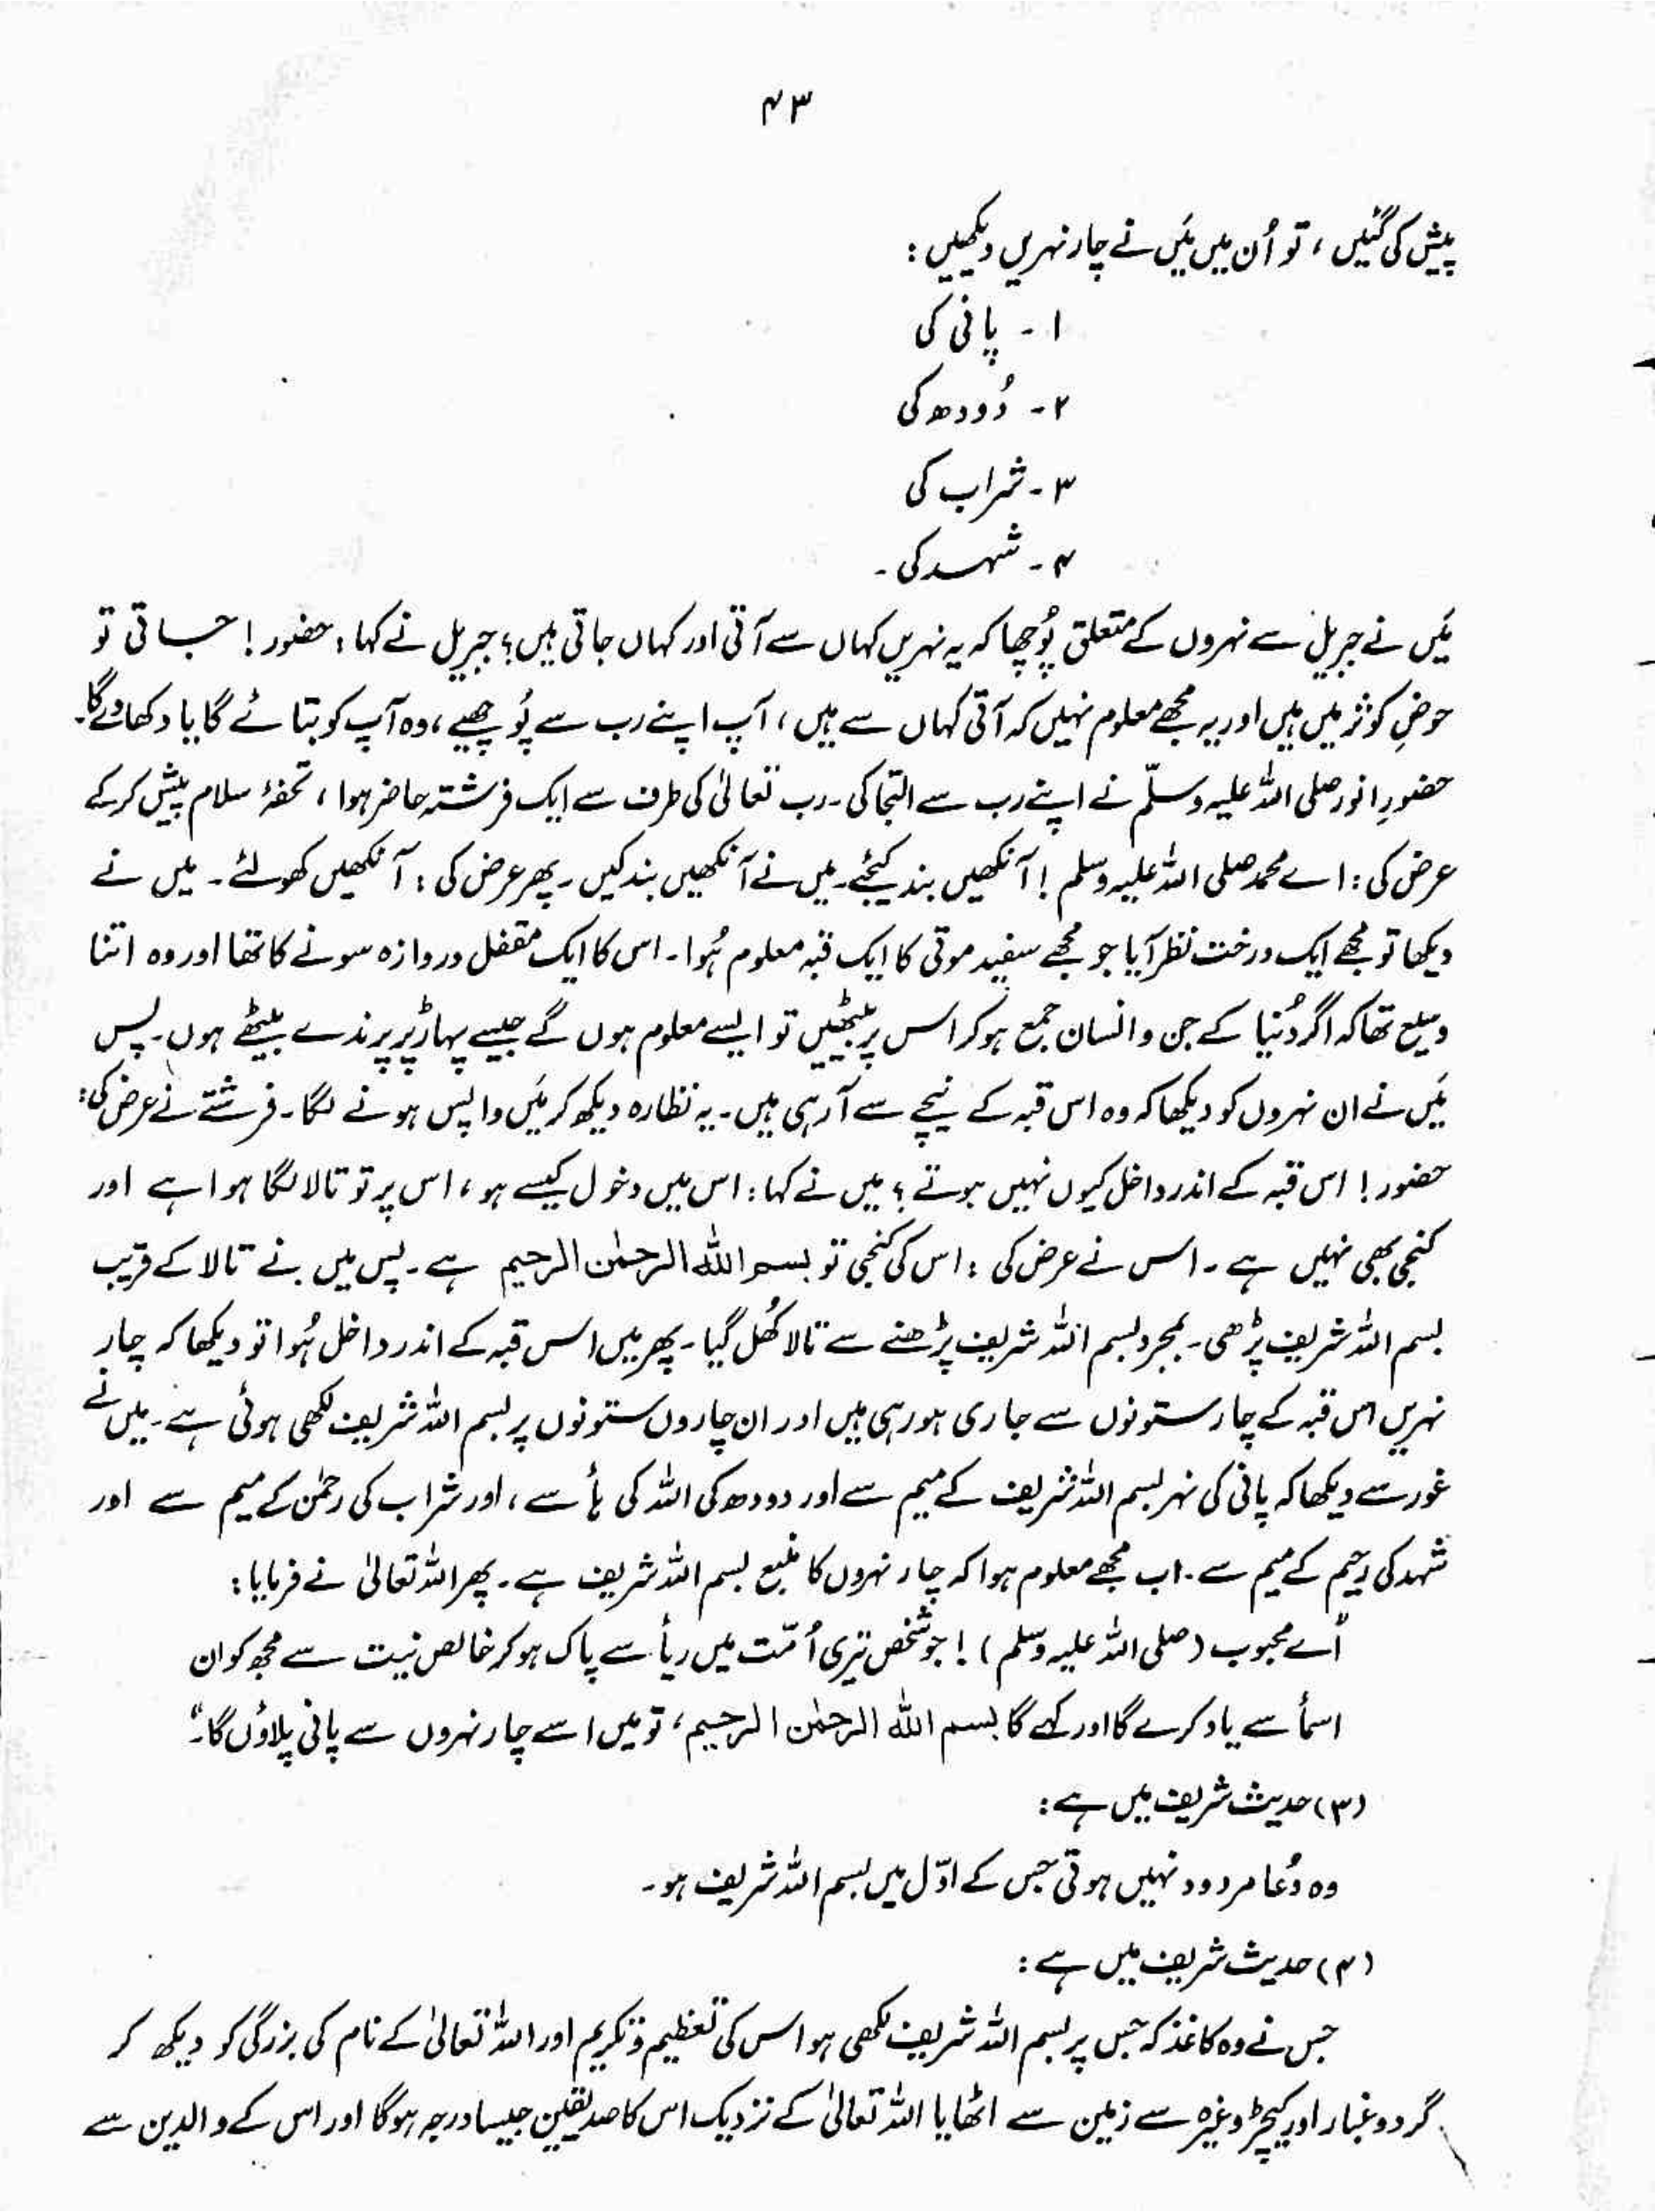 ۴۳
پیش کی گئیں، تو اُن میں مَیں نے چار نہریں دیکھیں:
۱- پانی کی
۲- دُودھ کی
۳- شراب کی
۴- شہد کی۔
مَیں نے جبریل سے نہروں کے متعلق پُوچھا کہ یہ نہریں کہاں سے آتی اور کہاں جاتی ہیں؟ جبریل نے کہا: حضور! جاتی تو
حوضِ کوثر میں ہیں اور یہ مجھے معلوم نہیں کہ آتی کہاں سے ہیں، آپ اپنے رب سے پُوچھیے، وہ آپ کو بتائے گا یا دکھا دے گا۔
حضورِ انور صلی اللہ علیہ وسلّم نے اپنے رب سے التجا کی۔ رب تعالیٰ کی طرف سے ایک فرشتہ حاضر ہوا، تحفۂ سلام پیش کر کے
عرض کی: اے محمد صلی اللہ علیہ وسلم! آنکھیں بند کیجئے۔ میں نے آنکھیں بند کیں۔ پھر عرض کی: آنکھیں کھولئے۔ میں نے
دیکھا تو مجھے ایک درخت نظر آیا جو مجھے سفید موتی کا ایک قبّہ معلوم ہُوا۔ اس کا ایک مقفل دروازہ سونے کا تھا اور وہ اتنا
وسیع تھا کہ اگر دُنیا کے جن و انسان جمع ہو کر اس پر بیٹھیں تو ایسے معلوم ہوں گے جیسے پہاڑ پر پرندے بیٹھے ہوں۔ پس
مَیں نے ان نہروں کو دیکھا کہ وہ اس قبہ کے نیچے سے آرہی ہیں۔ یہ نظارہ دیکھ کر مَیں واپس ہونے لگا۔ فرشتے نے عرض کی:
حضور! اس قبّہ کے اندر داخل کیوں نہیں ہوتے؟ میں نے کہا: اس میں دخول کیسے ہو، اس پر تو تالا لگا ہوا ہے اور
کنجی بھی نہیں ہے۔ اس نے عرض کی: اس کی کنجی تو بسم اللہ الرحمٰن الرحیم ہے۔ پس میں نے تالا کے قریب
بسم اللہ شریف پڑھی۔ بمجرد بسم اللہ شریف پڑھنے سے تالا کُھل گیا۔ پھر میں اس قبہ کے اندر داخل ہُوا تو دیکھا کہ چار
نہریں اس قبہ کے چار ستونوں سے جاری ہو رہی ہیں اور ان چاروں ستونوں پر بسم اللہ شریف لکھی ہوئی ہے۔ میں نے
غور سے دیکھا کہ پانی کی نہر بسم اللہ شریف کے میم سے اور دودھ کی اللہ کی ہأ سے، اور شراب کی رحمٰن کے میم سے اور
شہد کی رحیم کے میم سے۔ اب مجھے معلوم ہوا کہ چار نہروں کا منبع بسم اللہ شریف ہے۔ پھر اللہ تعالیٰ نے فرمایا:
"اے محبوب (صلی اللہ علیہ وسلم)! جو شخص تیری اُمّت میں ریأ سے پاک ہو کر خالص نیت سے مجھ کو ان
اسمأ سے یاد کرے گا اور کہے گا بسم اللہ الرحمٰن الرحیم، تو میں اسے چار نہروں سے پانی پلاؤں گا۔"
(۳) حدیث شریف میں ہے:
وہ دُعا مردود نہیں ہوتی جس کے اوّل میں بسم اللہ شریف ہو۔
(۴) حدیث شریف میں ہے:
جس نے وہ کاغذ کہ جس پر بسم اللہ شریف لکھی ہو اس کی تعظیم و تکریم اور اللہ تعالیٰ کے نام کی بزرگی کو دیکھ کر
گرد و غبار اور کیچڑ وغیرہ سے زمین سے اٹھایا اللہ تعالیٰ کے نزدیک اس کا صدیقین جیسا درجہ ہوگا اور اس کے والدین سے